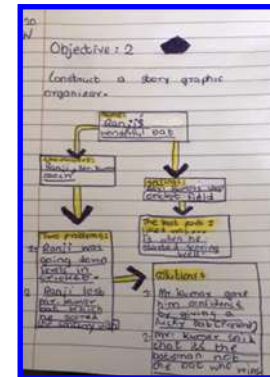 Objective: 2
Construct a story graphic
organizer.
Ranji's
wonderful bat
Ranji, Mr. Kumar
cricket field
The best parts I
is when he
started scoring
well
Two problems:
1: Ranji was
going down
levels in
cricket.
2: Ranji lost
Mr. Kumar
bat which
he scored
Solutions
1: Mr. Kumar gave
him confidence
by giving a
lucky bat
2: Mr. Kumar said
that it's the
batsman not
the bat who wins